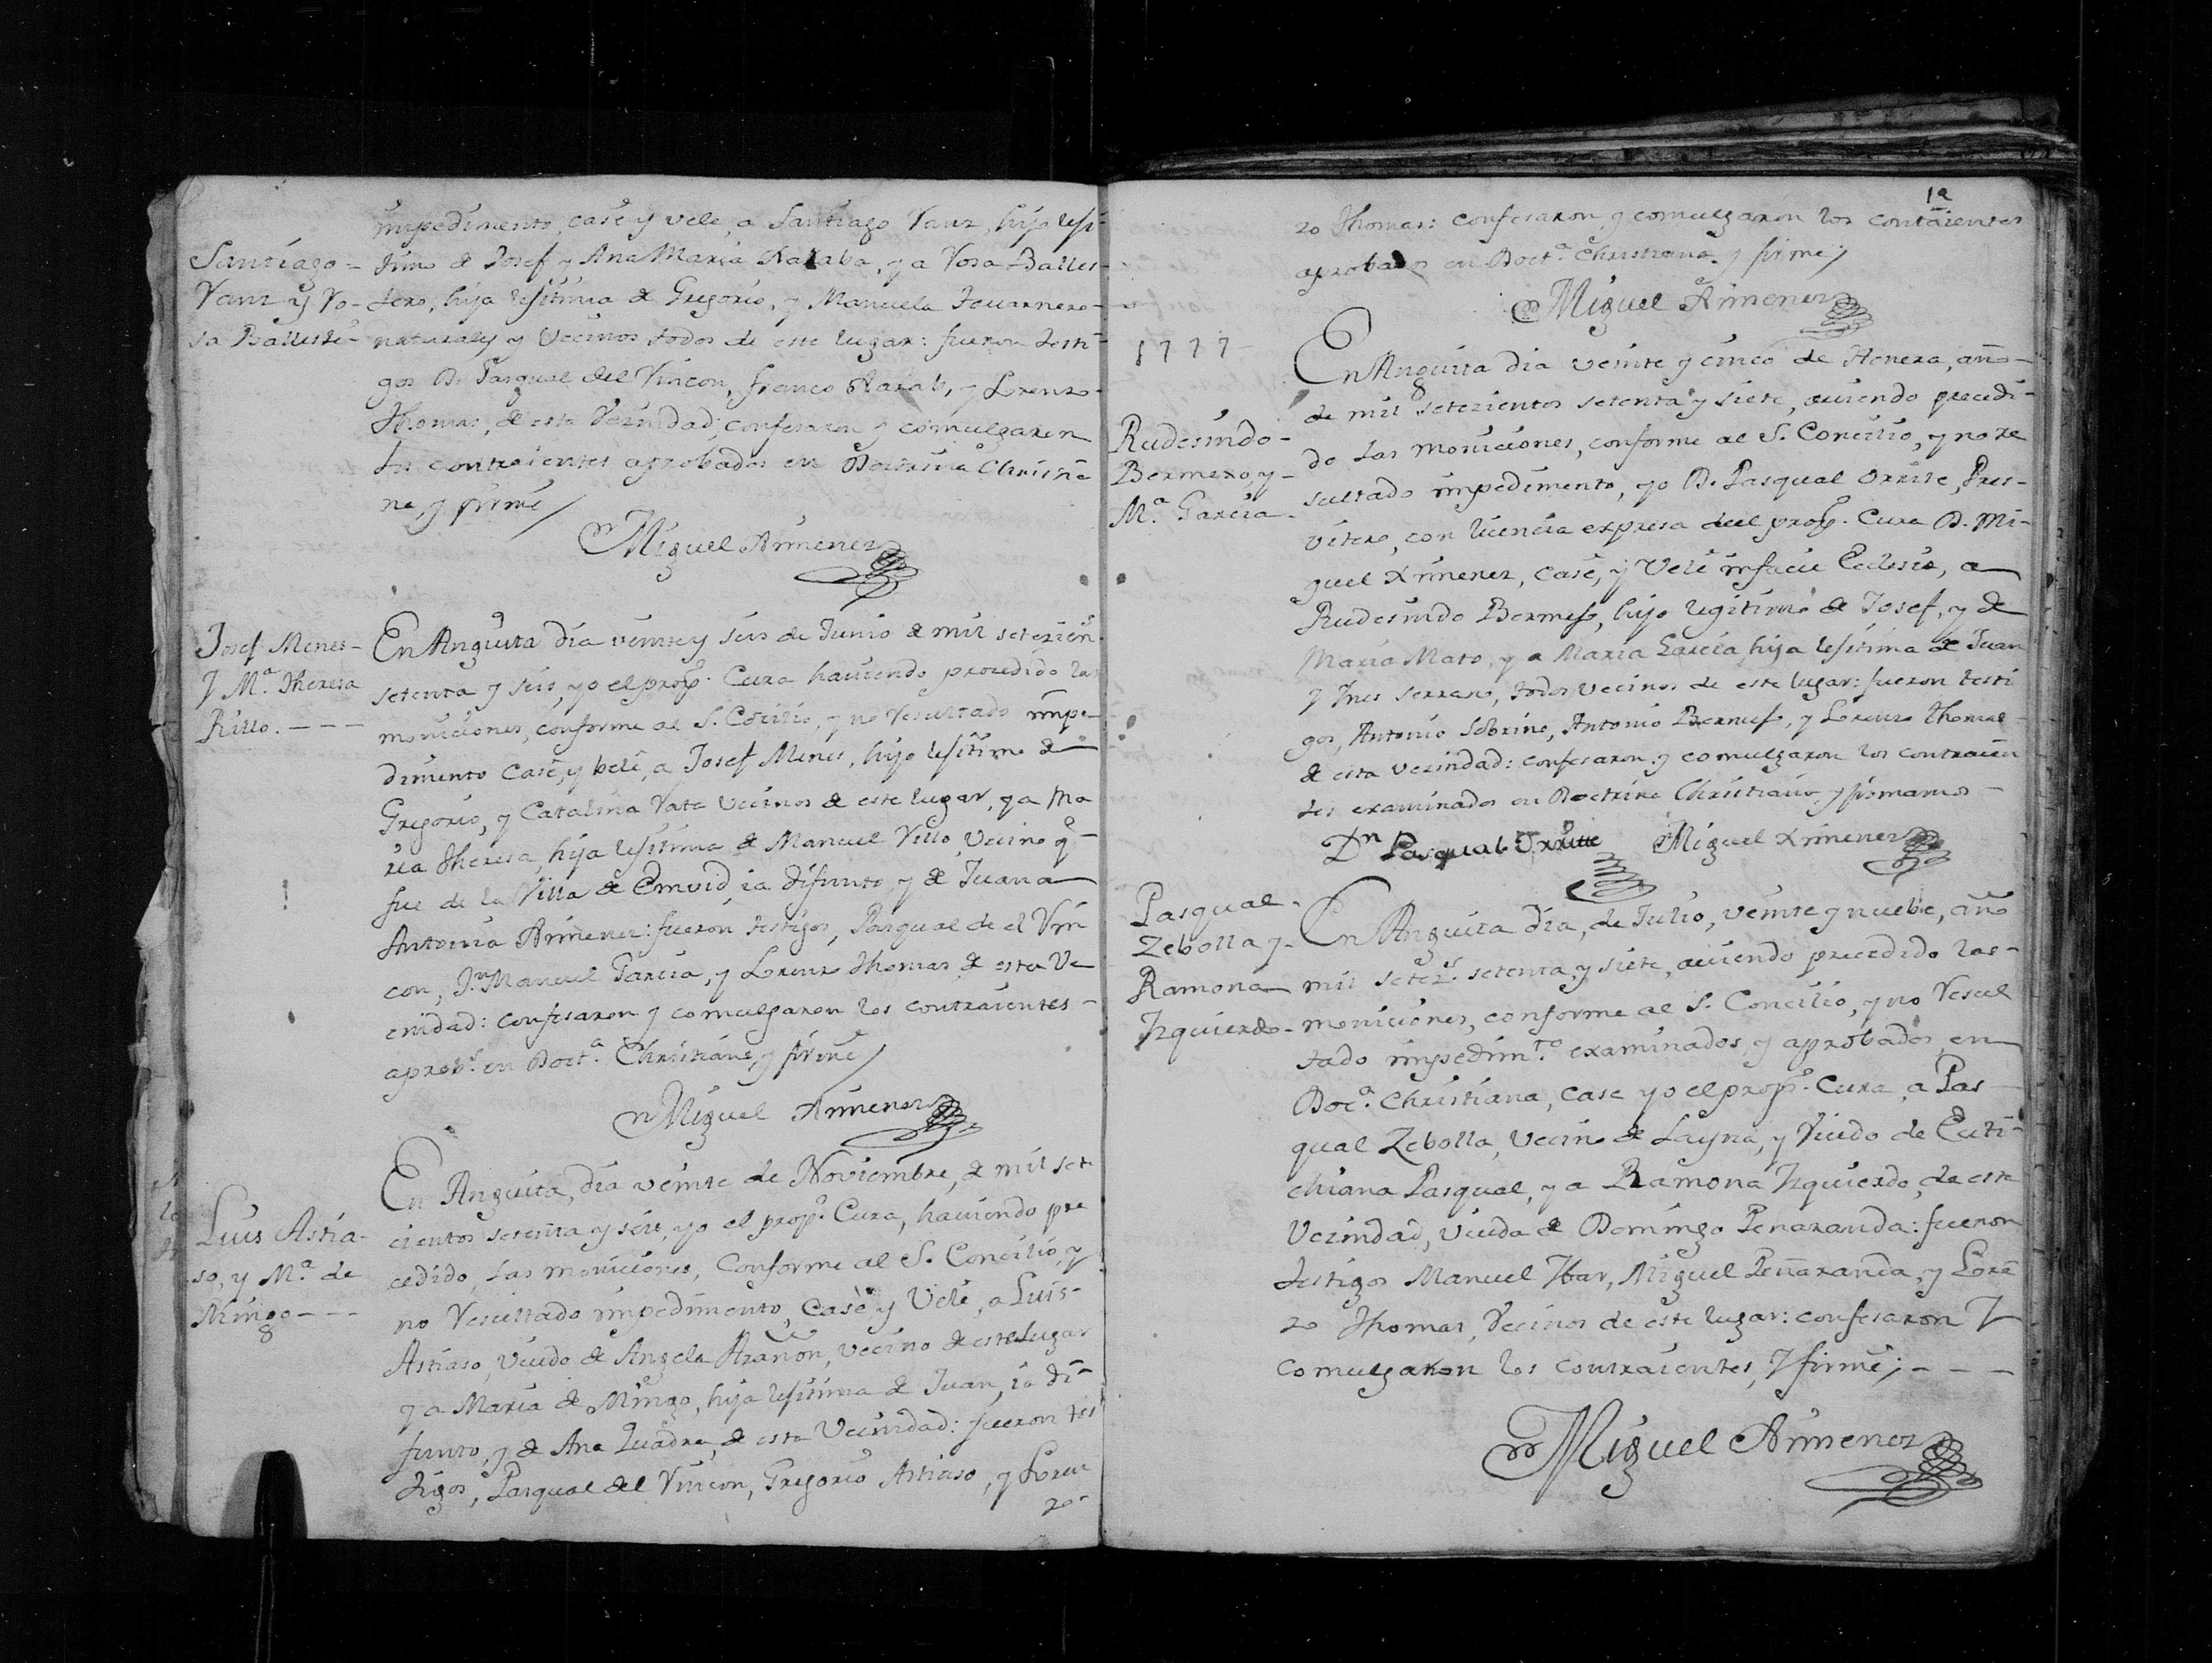 impedimento, casé y velé, a Santiago Vanz, hijo lesi-
Santiago
Vanz y Vo-
sa Balleste-
timo de Josef y Ana Maria , y a Vosa Balles-
tero, hija lesitima de Gregorio, y Manuela
naturales y Vecinos todos de este lugar: fueron testi-
gos D. Pasqual del Vincon, franco , y Lorenzo
Thomas, de esta Vezindad; confesaron y comulgaron
los contraientes aprobados en Doctrina Christia
na, y firmé
Miguel Ximenez
Josef Menes-
Y Mª Theresa
Rillo.---
En Anguita dia veinte y seis de Junio de mil setezien
setenta y seis, yo el propº. Cura haviendo precedido las
moniciones, conforme al S. Cocilio, y no Vesultado impe-
dimento casé, y velé, a Josef Menes, hijo lesitimo de
Gregorio, y Catalina Vata Vecinos de este lugar, y a Ma
ria Theresa, hija lesitima de Manuel Villo, Vecino q
fue de la Villa de Emvid, ia difunto, y de Juana
Antonia Ximenez: fueron testigos, Pasqual de el Vin
con, Jn Manuel Garcia, y Lorenzo Thomas, de esta Ve
cindad: confesaron y comulgaron los contraientes-
aprobs. en Docta. Christiana, y firmé
Miguel Ximenez
Luis Astia-
so, y Mª. de
Mingo---
En Anguita, dia veinte de Noviembre, de mil sete
cientos setenta y seis, yo el propº. Cura, haviendo pre
cedido, las moniciones, Conforme al S. Concilio, y
no Vesultado impedimento, Casé y Velé, a Luis-
Astiaso, Viudo de Angela Arañon, vecino de este Lugar
y a Maria de Mingo, hija lesitima de Juan, ia di-
funto, y de Ana Quadra, de esta Vecindad: fueron tes
tigos, Pasqual del Vincon, Gregorio Astiaso, y Loren
zo-
12
zo Thomas: confesaron, y comulgaron los contraientes
aprobados en Docta. Christiana, y firmé
Miguel Ximenez
1777
Rudesindo-
Bermexo, y-
Mª. Garcia
En Anguita dia veinte y cinco de Henero, año-
de mil setezientos setenta y siete, aviendo precedi-
do las moniciones, conforme al S. Concilio, y no re
sultado impedimento, yo D. Pasqual Orrite, Pres-
vitero, con licencia expresa deel propº. Cura D. Mi-
guel Ximenez, Casé, y Velé infacie Eclesie, a
Rudesindo Bermejo, hijo legitimo de Josef, y de
Maria Mato, y a Maria Garcia, hija lesitima de Juan
y Ines Serrano, todos vecinos de este lugar: fueron testi
gos, Antonio Sobrino, Antonio Bermejo, y Lorenzo Thomas-
de esta vezindad: confesaron y comulgaron los contraien
tes examinados en Doctrina Christiana y firmamos-
Dn Pasqual Orrite Miguel Ximenez
Pasqual-
Zebolla y-
Ramona
Izquierdo-
En Anguita dia, de Julio, veinte y nuebe, año
mil setezs. setenta, y siete, aviendo precedido las-
moniciones, conforme al S. Concilio, y no Vesul
tado impedimto. examinados, y aprobados en
Docª. Christiana, case yo el propº. Cura, a Pas-
qual Zebolla, Vecino de Layna, y Viudo de Euti-
chiana Pasqual, y a Ramona Izquierdo, de esta
Vezindad, viuda de Domingo Penaranda: fueron
testigos Manuel Ybar, Miguel Peñaranda, y Loren
zo Thomas, Vecinos de este lugar: confesaron Y
comulgaron los contraientes, Y firmé; - - -
Miguel Ximenez